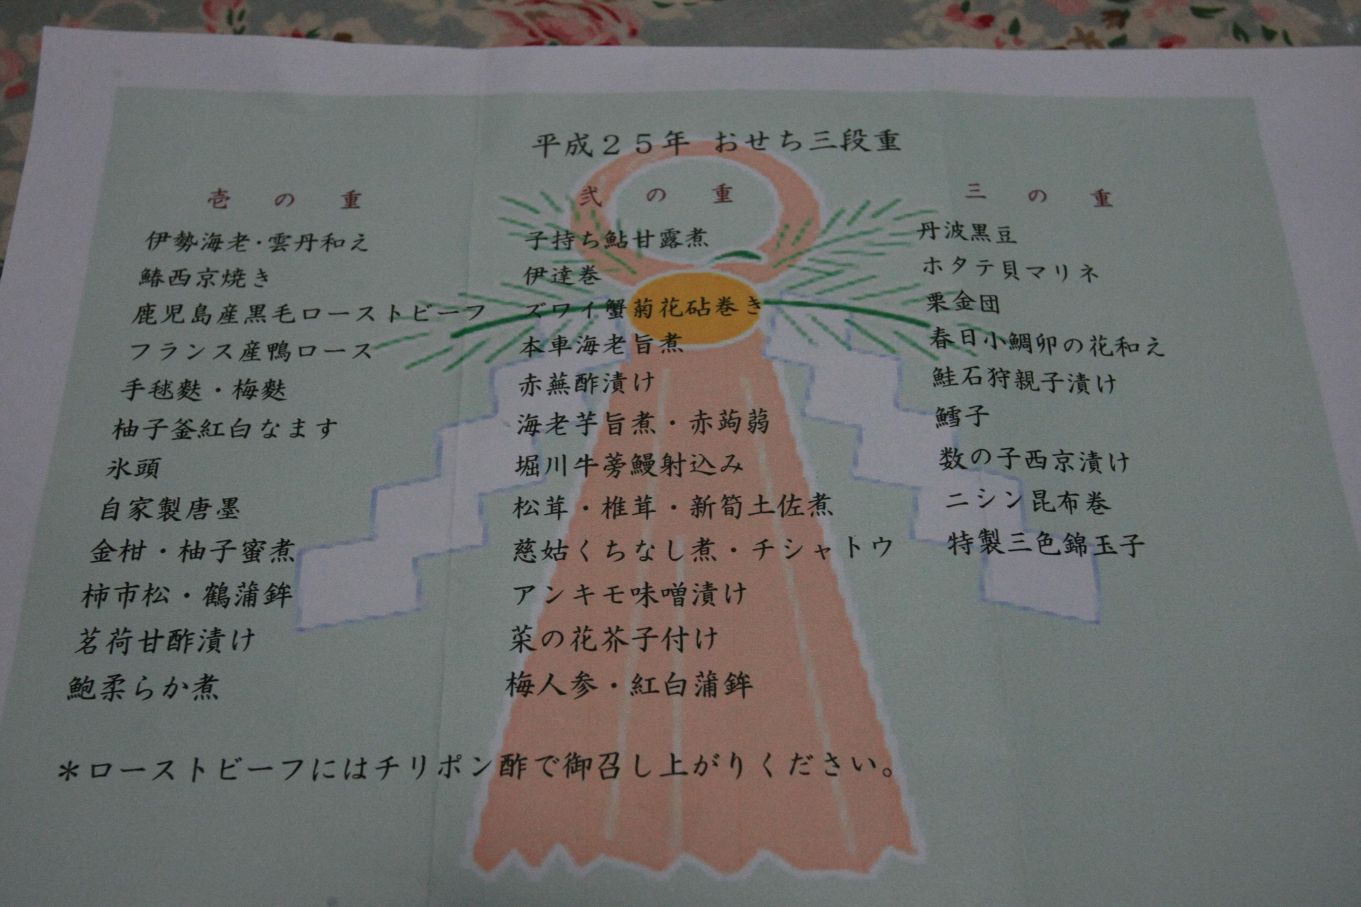 平成２５年 おせち三段重
壱の重
伊勢海老・雲丹和え
鰆西京焼き
鹿児島産黒毛ローストビーフ
フランス産鴨ロース
手毬麩・梅麩
柚子釜紅白なます
氷頭
自家製唐墨
金柑・柚子蜜煮
柿市松・鶴蒲鉾
茗荷甘酢漬け
鮑柔らか煮
弐の重
子持ち鮎甘露煮
伊達巻
ズワイ蟹菊花砧巻き
本車海老旨煮
赤蕪酢漬け
海老芋旨煮・赤蒟蒻
堀川牛蒡鰻射込み
松茸・椎茸・新筍土佐煮
慈姑くちなし煮・チシャトウ
アンキモ味噌漬け
菜の花芥子付け
梅人参・紅白蒲鉾
三の重
丹波黒豆
ホタテ貝マリネ
栗金団
春日小鯛卯の花和え
鮭石狩親子漬け
鱈子
数の子西京漬け
ニシン昆布巻
特製三色錦玉子
＊ローストビーフにはチリポン酢で御召し上がりください。